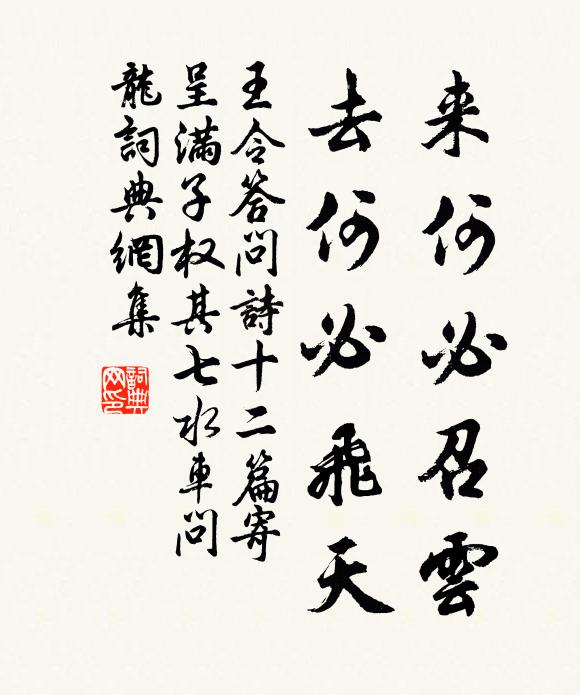 来何必召雲
去何必飛天
王令答問詩十二篇寄
呈满子权其七水車問
龍詞典網集
詞典网印